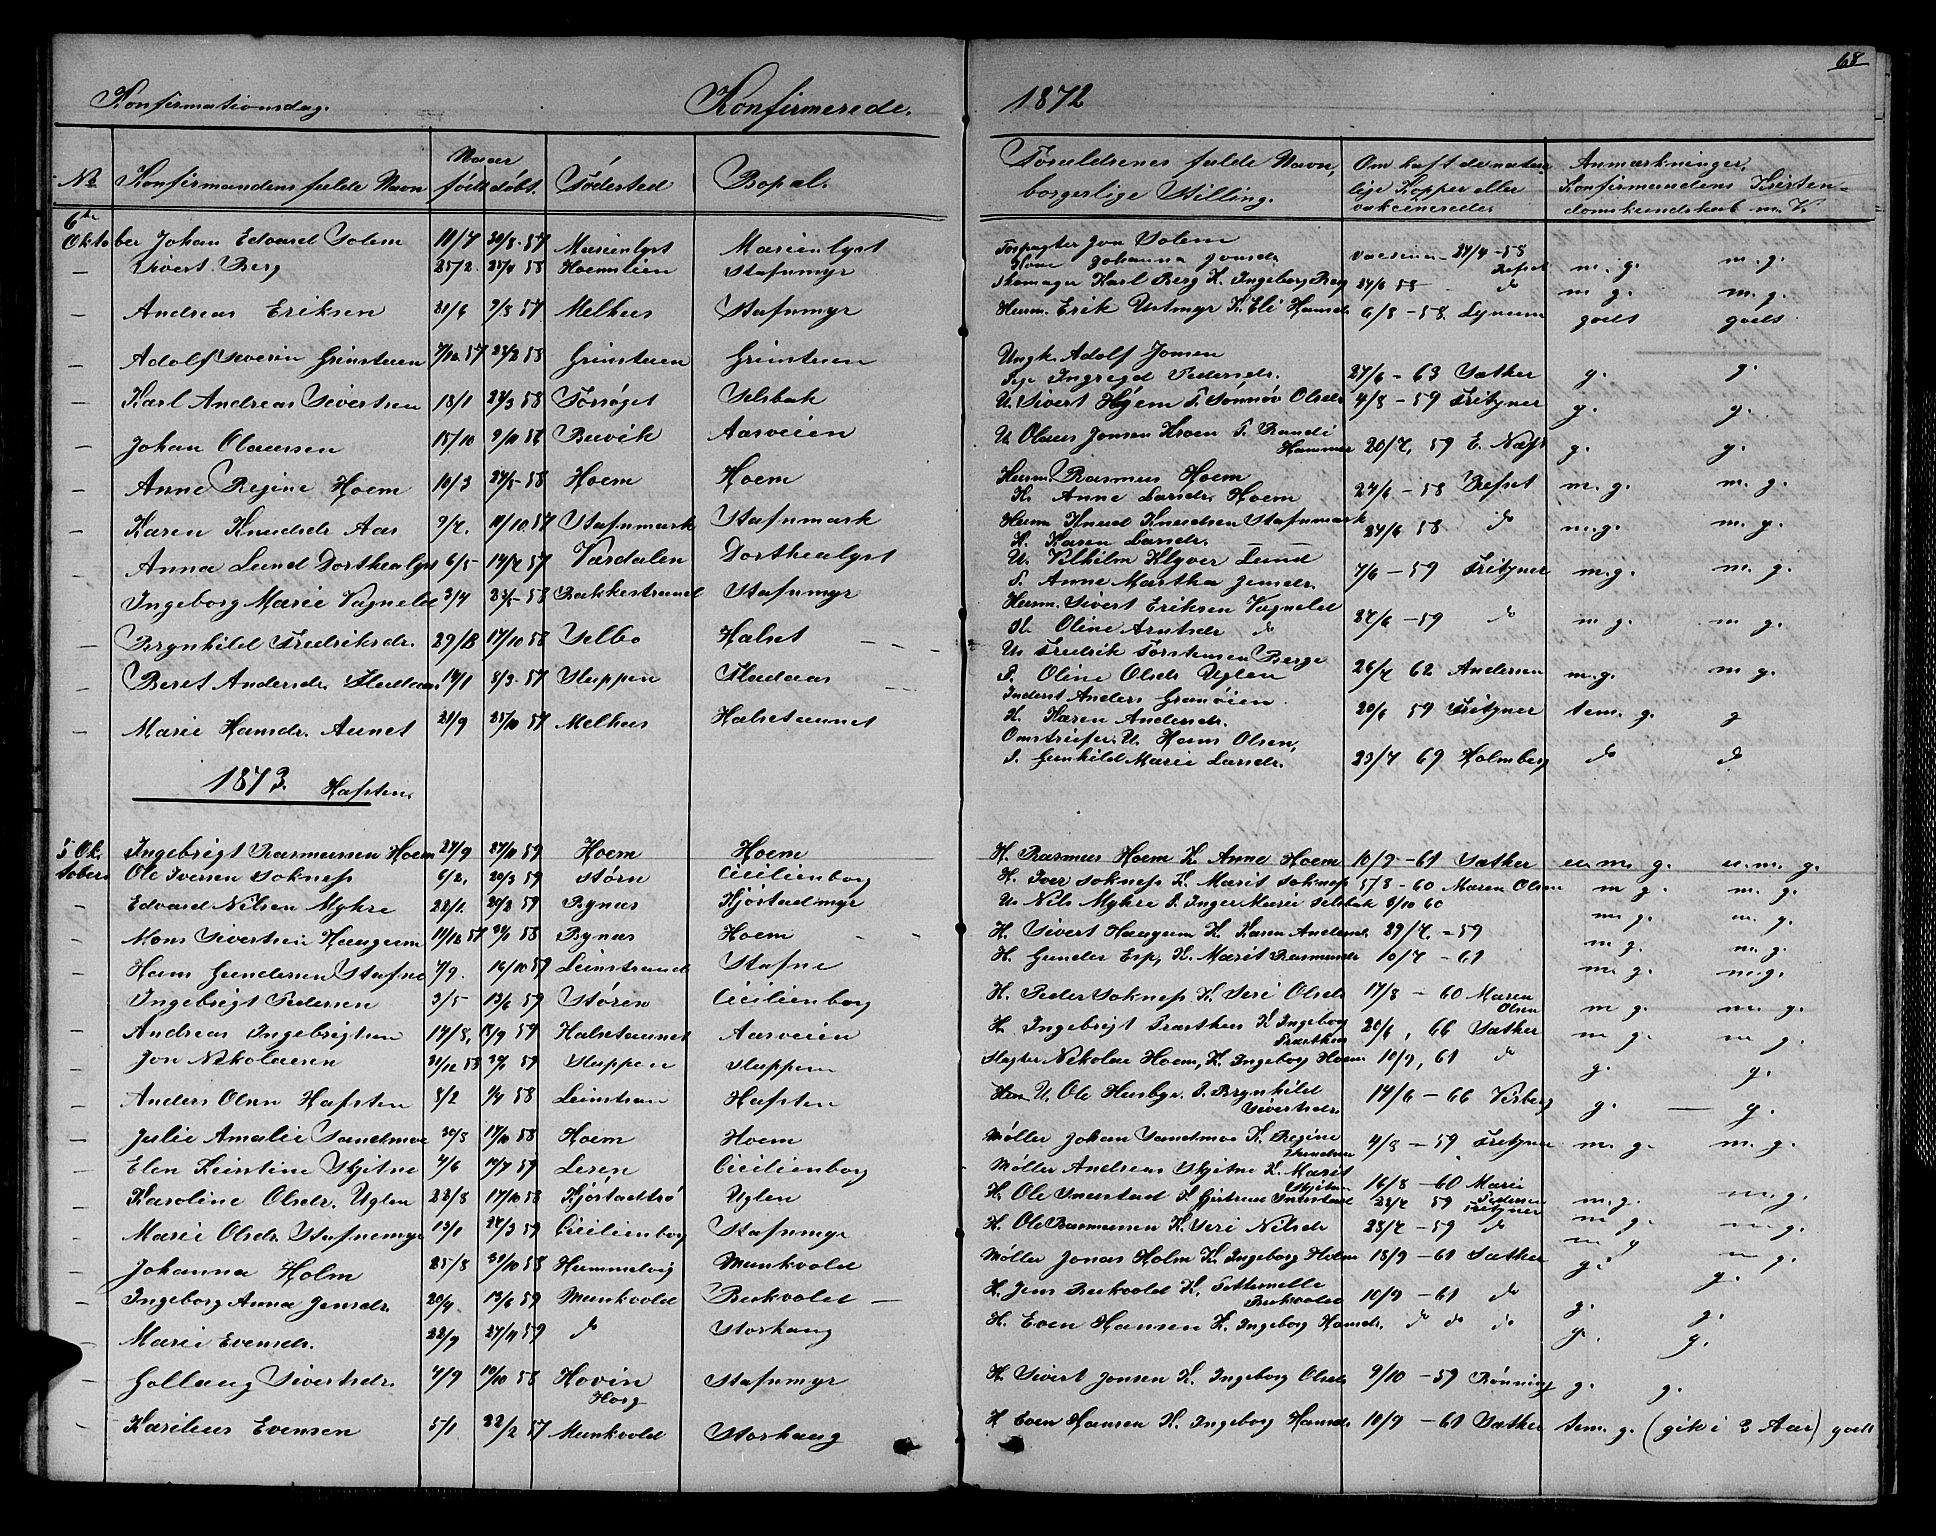 68
Konfirmationsdag. Konfirmerede. 1872
No Konfirmandens fulde Navn Naaer født døbt. Fødested Bopæl. Forældrenes fulde Navn, borgerlige Stilling. Om haft de naturlige Kopper eller vakcinerede. Anmærkninger. Konfirmandens Kristendomskundskab m. V.
6te Oktober Johan Edvard Solem 10/7 30/8 57 Marienlyst Marienlyst Forpagter Jon Solem Kone Johanna Jonsdr. vaccineret 24/4 - 58 Refset m. g. m. g.
— Sivert Berg 25/2 25/4 58 Hoemslien Stafnmyr Skomager Karl Berg K. Ingeborg Berg 24/6 58 do m g. m. g.
— Andreas Eriksen 21/6 9/8 57 Melhus Stafnmyr Husm. Erik Ustmyr K. Eli Hansdr. 6/8 - 58. Lynum godt godt.
— Adolf Severin Grinstuen 7/12 57 24/2 58 Grinstuen Grinstuen Ungk. Adolf Jonsen Pige Ingregd Pedersdr. 27/6 - 63 Sæther g. g.
— Karl Andreas Sivertsen 18/1 28/3 58 Forsøget Selsbak U. Sivert Høgem P. Sønnøv Olsdr 4/8 - 59 Fritzner g. g.
— Johan Olaussen 15/10 9/11 56 Buvik Aasveien U Olaus Jonsen Kroen P. Randi Hammer 20/7, 59 E. Næss g. g.
— Anne Regine Hoem 10/3 24/5 - 58 Hoem Hoem Husm. Rasmus Hoem K. Anne Larsdr. Hoem 24/6 - 58 Refset m. g. m. g.
— Karen Knudsdr Aas 9/7. 11/10 57 Stafnmark Stafnmark Husm Knud Knudsen Stafnmark K. Karen Larsdr. 24/6 58 do m. g. m. g.
— Anna Lund Dorthealyst 6/5 - 14/7 57 Værdalen Dorthealyst U. Vilhelm Klyver Lund P. Anne Martha Jensdr. 7/6 - 59 Fritzner m. g. m. g.
— Ingeborg Marie Vagneld 3/4 23/5 - 58 Bakkestrand Stafnmyr Husm. Sivert Eriksen Vagneld K. Oline Arntsdr do 27/6 - 59 do m. g. m g.
— Brynhild Fredriksdr. 29/8 17/10 58 Selbo Halset — U. Fredrik Torstensen Berge P. Oline Olsdr Uglen 26/7 62 Andersen m. g. m g.
— Beret Andersdr. Fladaas 14/1 8/3 57 Sluppen Fladaas Inderst Anders Granøien K. Karen Andersdr. 20/6 59 Fritzner tem. g. g
— Marie Hansdr. Aunet 21/9 25/10 57 Melhus Halsetaunet Omstreifer U. Hans Olsen, P. Gunhild Marie Larsdr. 23/7 69 Holmberg do do
1873. Hafsten.
5 Oktober Ingebrigt Rasmussen Hoem 27/9 27/11 59 Hoem Hoem H. Rasmus Hoem K. Anne Hoem 10/9 - 61 Sæther u. m. g. u. m. g.
— Ole Iversen Soknes 6/2. 20/3 59 Støren Cicilienborg H. Iver Soknes K. Marit Soknes 5/8 - 60 Maren Olsen m g. m. g.
— Edvard Nilsen Myhre 22/1. 20/2 59 Bynæs Kjøstadmyr U. Nils Myhre P. Inger Marie Selsbak 8/10 60 m. g. m. g.
— Mons Sivertsen Haugum 11/12 57 24/1 58 Bynæs Hoem H. Sivert Haugum K. Karen Andersdr. 29/7. - 59 m g. m. g.
— Hans Gundersen Stafne 7/9. 16/10 59 Leinstrand Stafne H. Gunder Esp, K. Marit Rasmusdr 10/7 - 61 m. g. m. g.
— Ingebrigt Pedersen 3/5 13/6 59 Støren Cicilienborg H. Peder Soknes K. Seri Olsdr 17/8 - 60 Maren Olsen m g. m. g.
— Andreas Ingebrigtsen 14/8, 18/9 59 Halsetaunet Aasveien H. Ingebrigt Trasthus K Ingeborg Trasthus 20/6, 66 Sæther m g. m g.
— Jon Nikolaisen 31/12 58 59 Sluppen Sluppen Slagter Nikolai Hoem, K. Ingeborg Hoem 10/9, 61 do g. g.
— Anders Olsen Hafsten 8/2 1/4 58 Leinstran Hafsten U. Ole Husbye. P. Brynhild Sivertsdr. 14/6 - 66 Visberg g. — g.
— Julie Amalie Sandmoe 30/8 17/10 58 Hoem Hoem Møller Johan Sandmoe K. Regine 4/8 - 59 Fritzner m. g. m. g.
— Elen Kirstine Skjitne 4/6 14/7 59 Leren Cicilienborg Møller Andreas Skjitne K. Marit Skjitne 16/8 - 60 Marie Pedersen m. g. m. g.
— Karoline Olsdr. Uglen 28/8 17/10 58 Kjøstadtrø Uglen H. Ole Smestad K Gjertrud Smestad 24/7 59 Fritzner m g. m g.
— Marie Olsdr Stafnemyr 13/1 24/3 59 Cicilienborg Stafnmyr H. Ole Rasmussen K. Seri Nilsdr 28/7 - 59 do m g m g.
— Johanna Holm 25/8 31/10 58 Hummelvig Munkvold Møller Jonas Holm K. Ingeborg Holm 18/9 - 61 Sæther g. g.
— Ingeborg Anna Jensdr. 20/4. 13/6 59 Munkvold Bukvold — H. Jens Bukvold K. Petternelle Bukvold 10/9 - 61 do g. g.
— Marie Evensdr. 22/9 27/11 59 do Storhaug H. Even Hansen K. Ingeborg Hansdr. do do do g. g.
— Gollaug Sivertsdr. 4/9 10/10 58 Hovin Horg Stafnmyr H. Sivert Jonsen K. Ingeborg Olsdr 9/10 - 59 Rønning g. g.
— Karilius Evensen 5/1 22/2 57 Munkvold Storhaug H Even Hansen K. Ingeborg Hansdr 10/9 - 61 Sæther tem. g. (gik i 3 Aar) godt